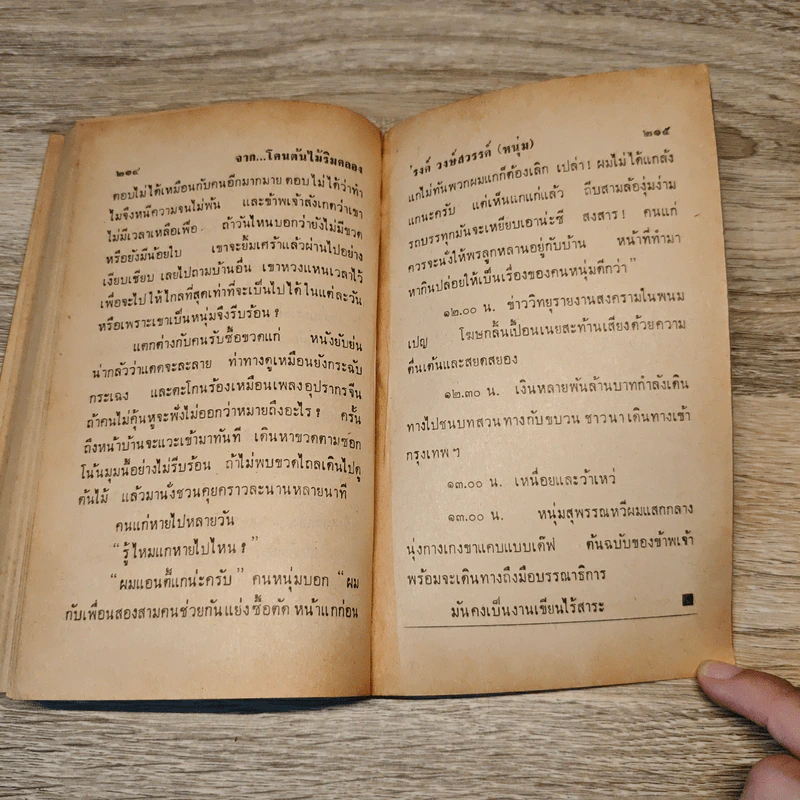 ๒๑๔
จาก...โคนต้นไม้ริมคลอง
ตอบไม่ได้เหมือนกับคนอีกมากมาย ตอบไม่ได้ว่าทำ
ไมจึงหนีความจนไม่พ้น และข้าพเจ้าสังเกตว่าเขา
ไม่มีเวลาเหลือเฟือ ถ้าวันไหนบอกว่ายังไม่มีขวด
หรือยังมีน้อยใบ เขาจะยิ้มเศร้าแล้วผ่านไปอย่าง
เงียบเชียบ เลยไปถามบ้านอื่น เขาหวงแหนเวลาไว้
เพื่อจะไปให้ไกลที่สุดเท่าที่จะเป็นไปได้ในแต่ละวัน
หรือเพราะเขาเป็นหนุ่มจึงรีบร้อน ?
แตกต่างกับคนรับซื้อขวดแก่ หนังยับย่น
น่ากลัวว่าแดดจะละลาย ท่าทางดูเหมือนยังกระฉับ
กระเฉง และตะโกนร้องเหมือนเพลงอุปรากรจีน
ถ้าคนไม่คุ้นหูจะฟังไม่ออกว่าหมายถึงอะไร ? ครั้น
ถึงหน้าบ้านจะแวะเข้ามาทันที เดินหาขวดตามซอก
โน้นมุมนี้อย่างไม่รีบร้อน ถ้าไม่พบขวดไถลเดินไปดู
ต้นไม้ แล้วมานั่งชวนคุยคราวละนานหลายนาที
คนแก่หายไปหลายวัน
“รู้ไหมแกหายไปไหน ?”
“ผมแอนตี้แกน่ะครับ” คนหนุ่มบอก “ผม
กับเพื่อนสองสามคนช่วยกันแย่งซื้อตัดหน้าแกก่อน
’รงค์ วงษ์สวรรค์ (หนุ่ม)
๒๑๕
แกไม่ทันพวกผมแกก็ต้องเลิก เปล่า ! ผมไม่ได้แกล้ง
แกนะครับ แต่เห็นแกแก่แล้ว ถีบสามล้องุ่มง่าม
รถบรรทุกมันจะเหยียบเอาน่ะซี สงสาร ! คนแก่
ควรจะนั่งให้พรลูกหลานอยู่กับบ้าน หน้าที่ทำมา
หากินปล่อยให้เป็นเรื่องของคนหนุ่มดีกว่า”
๑๒.๐๐ น. ข่าววิทยุรายงานสงครามในพนม
เปญ โฆษกลิ้นเปื้อนเนยสะท้านเสียงด้วยความ
ตื่นเต้นและสยดสยอง
๑๒.๓๐ น. เงินหลายพันล้านบาทกำลังเดิน
ทางไปชนบทสวนทางกับขบวน ชาวนาเดินทางเข้า
กรุงเทพ ฯ
๑๓.๐๐ น. เหนื่อยและว้าเหว่
๑๓.๐๐ น. หนุ่มสุพรรณหวีผมแสกกลาง
นุ่งกางเกงขาแคบแบบเด๊ฟ ต้นฉบับของข้าพเจ้า
พร้อมจะเดินทางถึงมือบรรณาธิการ
มันคงเป็นงานเขียนไร้สาระ